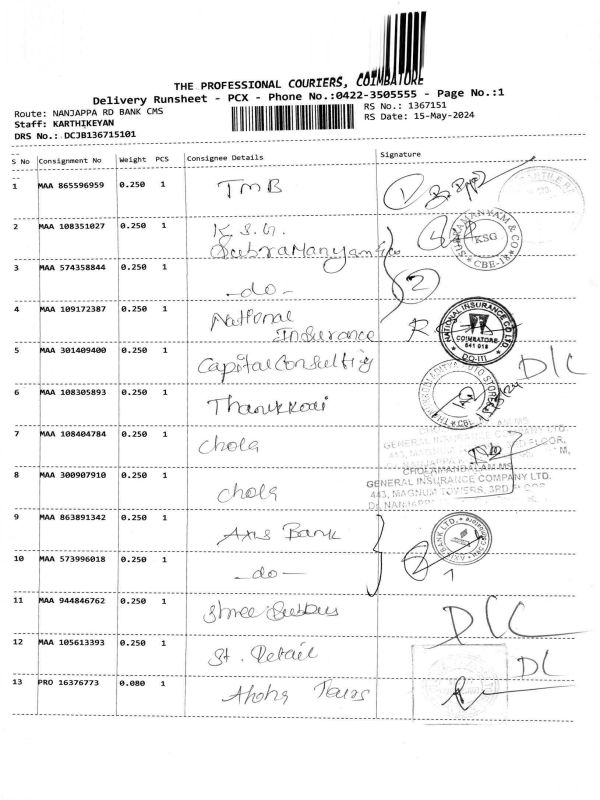 THE PROFESSIONAL COURIERS, COIMBATORE
Delivery Runsheet - PCX - Phone No.:0422-3505555 - Page No.:1
Route: NANJAPPA RD BANK CMS
RS No.: 1367151
Staff: KARTHIKEYAN
RS Date: 15-May-2024
DRS No.: DCJB136715101
S No Consignment No Weight PCS Consignee Details Signature
1 MAA 865596959 0.250 1 TMB 1
2 MAA 108351027 0.250 1 K.S.G.
Subramanyam & Co
SUBRAMANYAM & CO KSG CBE-18
3 MAA 574358844 0.250 1 -do- 2
4 MAA 109172387 0.250 1 National
Insurance
NATIONAL INSURANCE CO LTD COIMBATORE 641 018 DO-III
5 MAA 301409400 0.250 1 Capital Consulting DLC
6 MAA 108305893 0.250 1 Thanikkodi
7 MAA 108404784 0.250 1 Chola
GENERAL INSURANCE COMPANY LTD.
443, MAGNUM TOWERS, 3RD FLOOR,
8 MAA 300907910 0.250 1 Chola
CHOLAMANDALAM MS
GENERAL INSURANCE COMPANY LTD.
443, MAGNUM TOWERS, 3RD FLOOR
9 MAA 863891342 0.250 1 Axis Bank
AXIS BANK LTD.
10 MAA 573996018 0.250 1 -do-
11 MAA 944846762 0.250 1 Shree DLC
12 MAA 105613393 0.250 1 St. Retail DL
13 PRO 16376773 0.080 1 Tours